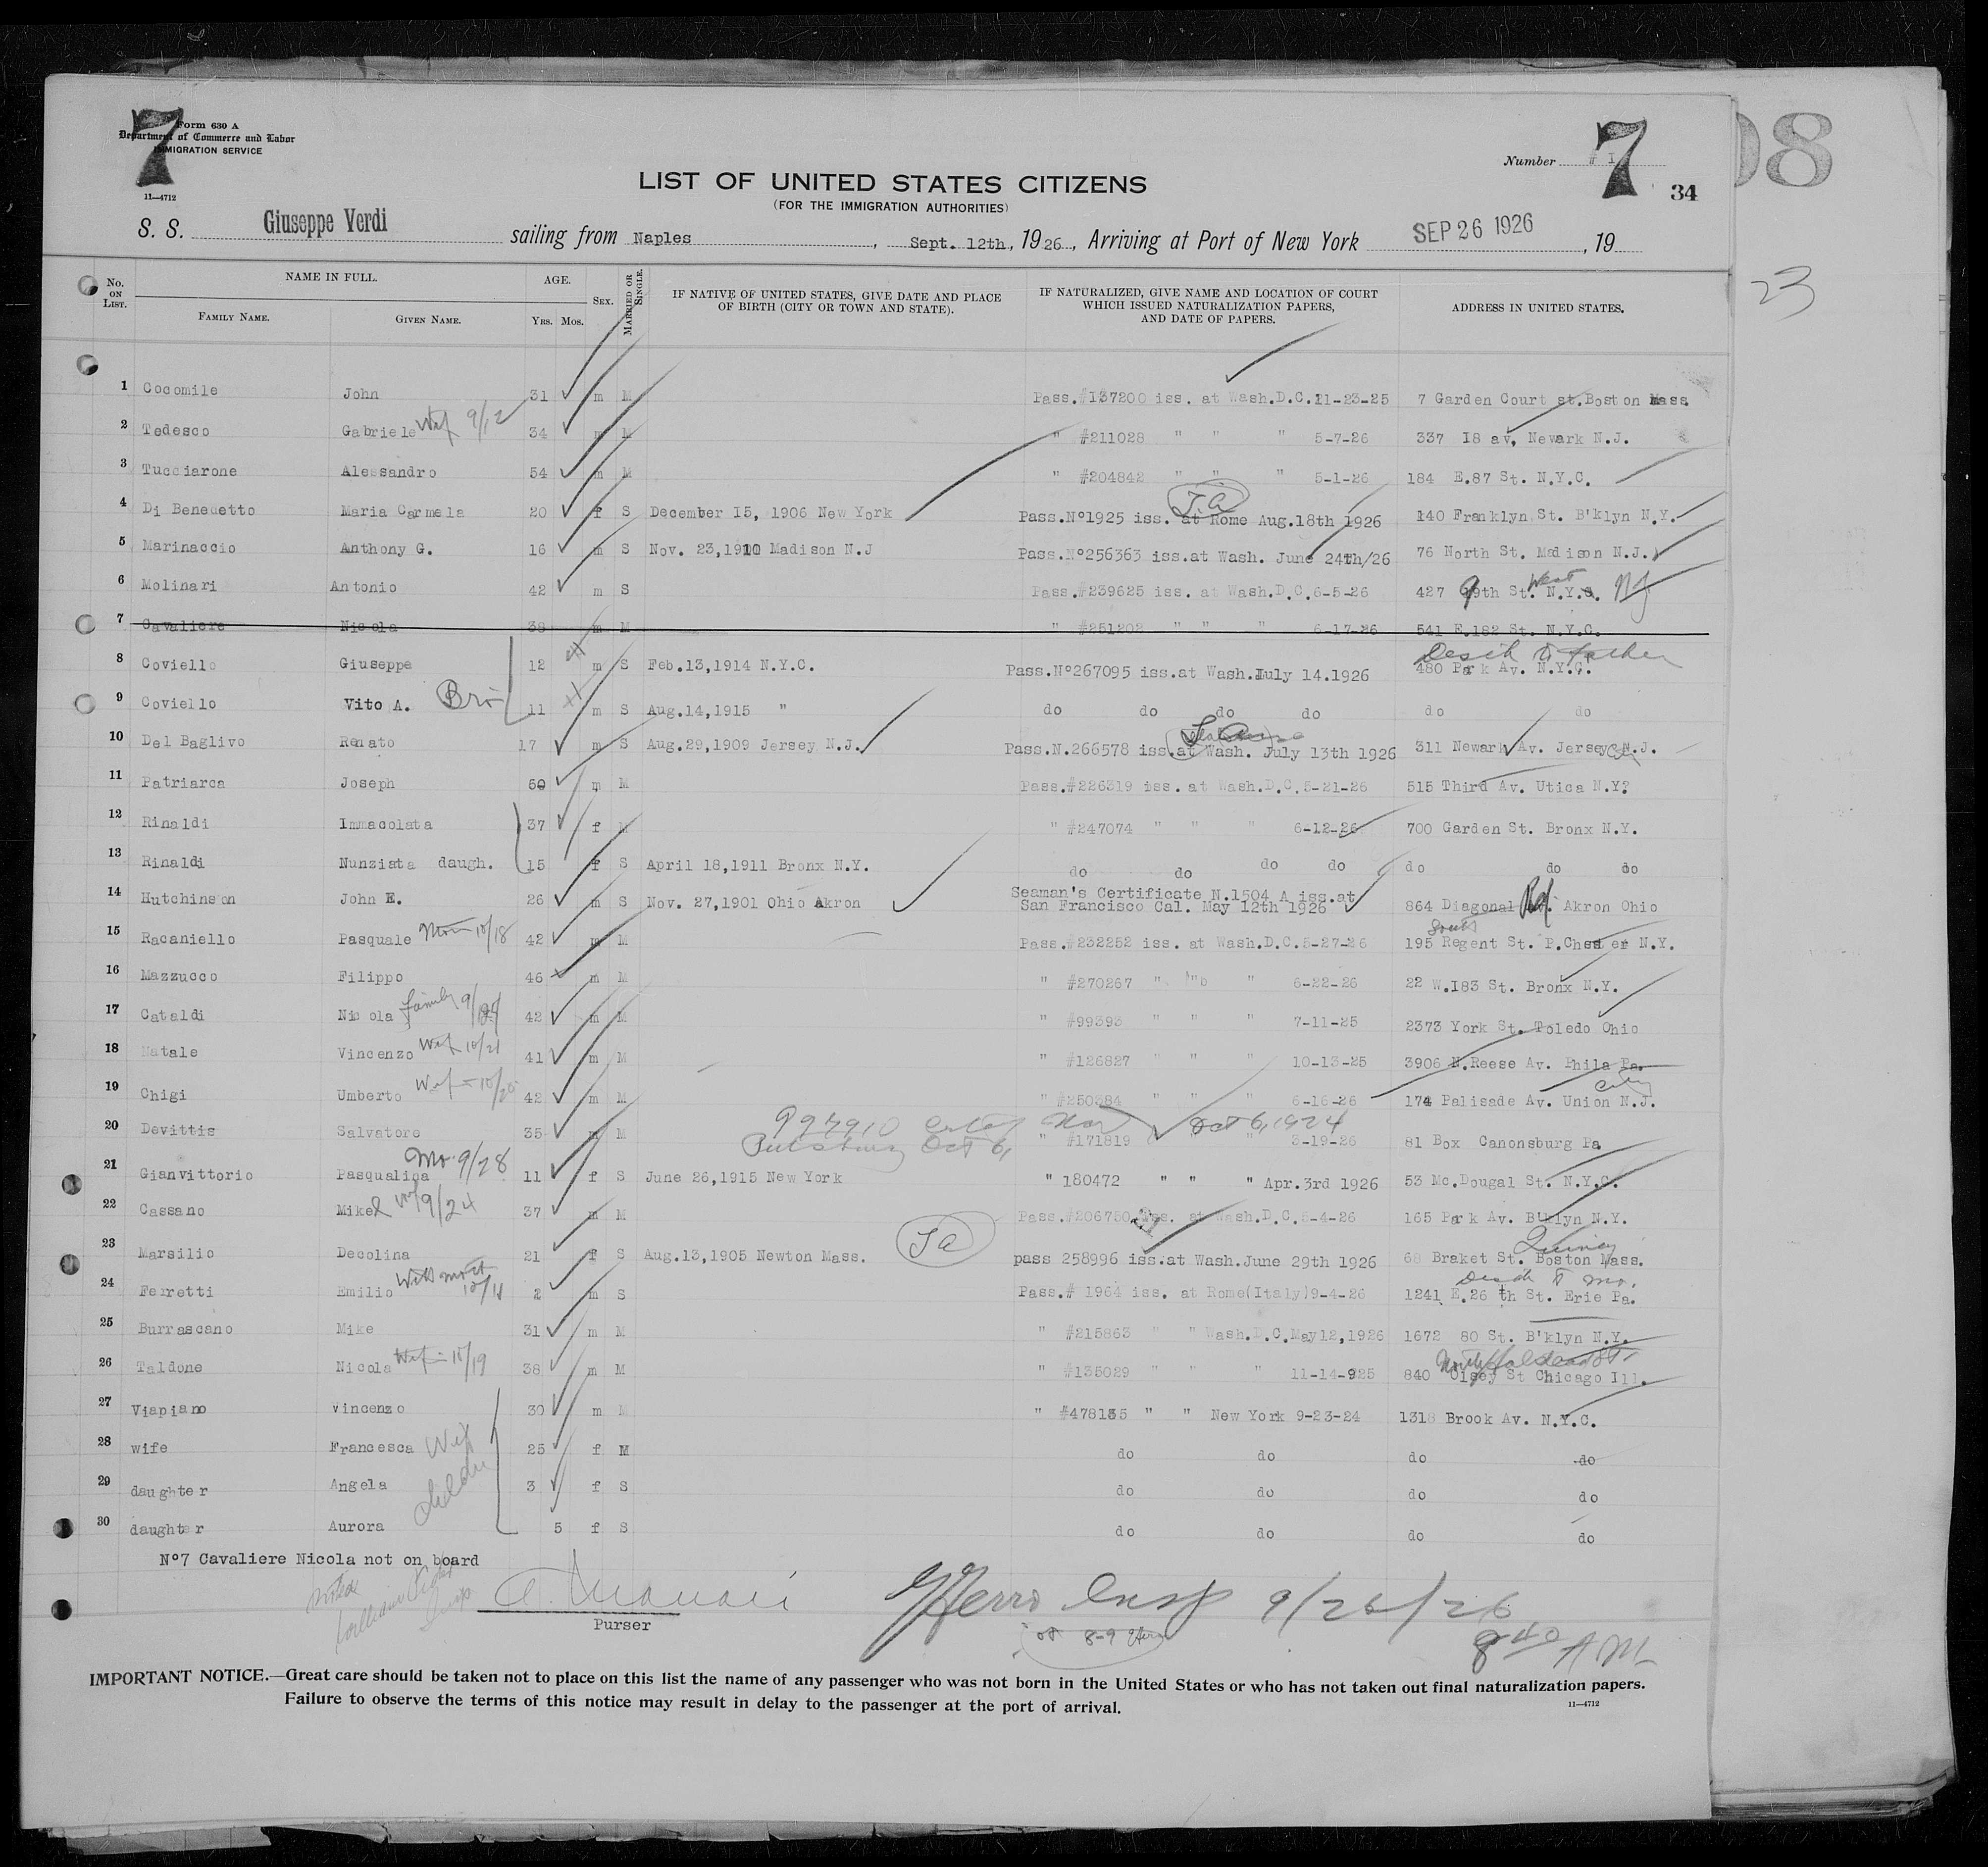 7
Form 630 A
Department of Commerce and Labor
IMMIGRATION SERVICE
11—4712
08
Number # I
7
34
LIST OF UNITED STATES CITIZENS
(FOR THE IMMIGRATION AUTHORITIES)
S. S. Giuseppe Verdi sailing from Naples, Sept. 12th, 1926, Arriving at Port of New York SEP 26 1926, 19
23
No. ON LIST. NAME IN FULL. FAMILY NAME. GIVEN NAME. AGE. YRS. MOS. SEX. MARRIED OR SINGLE. IF NATIVE OF UNITED STATES, GIVE DATE AND PLACE OF BIRTH (CITY OR TOWN AND STATE). IF NATURALIZED, GIVE NAME AND LOCATION OF COURT WHICH ISSUED NATURALIZATION PAPERS, AND DATE OF PAPERS. ADDRESS IN UNITED STATES.
1 Cocomile John 31 m M Pass.#137200 iss. at Wash.D.C.11-23-25 7 Garden Court st.Boston Mass.
2 Tedesco Gabriele Wif 9/12 34 m M " #211028 " " " 5-7-26 337 I8 av, Newark N.J.
3 Tucciarone Alessandro 54 m M " #204842 " " " 5-1-26 184 E.87 St. N.Y.C.
4 Di Benedetto Maria Carmela 20 f S December I5, 1906 New York Pass.Nº1925 iss. at Rome Aug.18th 1926 140 Franklyn St. B'klyn N.Y.
5 Marinaccio Anthony G. 16 m S Nov. 23,1910 Madison N.J Pass.Nº256363 iss.at Wash. June 24th/26 76 North St. Madison N.J.
6 Molinari Antonio 42 m S Pass.#239625 iss. at Wash.D.C.6-5-26 427 9th St. West N.Y. NJ
7 Cavaliere Nicola 38 m M " #251202 " " " 6-17-26 541 E.182 St. N.Y.C.
Desch to father
8 Coviello Giuseppe 12 m S Feb.13,1914 N.Y.C. Pass.Nº267095 iss.at Wash.July 14.1926 480 Park Av. N.Y.C.
9 Coviello Vito A. Bro 11 m S Aug.14,1915 " do do do do do do
10 Del Baglivo Renato 17 m S Aug.29,1909 Jersey N.J. Pass.N.266578 iss.at Wash. July 13th 1926 311 Newark Av. Jersey City N.J.
11 Patriarca Joseph 50 m M Pass.#226319 iss. at Wash.D.C.5-21-26 515 Third Av. Utica N.Y?
12 Rinaldi Immacolata 37 f M " #247074 " " " 6-12-26 700 Garden St. Bronx N.Y.
13 Rinaldi Nunziata daugh. 15 f S April 18,1911 Bronx N.Y. do do do do do do do
14 Hutchinson John E. 26 m S Nov. 27,1901 Ohio Akron Seaman's Certificate N.1504 A iss.at
San Francisco Cal. May 12th 1926 864 Diagonal Rd. Akron Ohio
15 Racaniello Pasquale 10/18 42 m M Pass.#232252 iss. at Wash.D.C.5-27-26 195 South Regent St. P.Chester N.Y.
16 Mazzucco Filippo 46 m M " #270267 " " " 6-22-26 22 W.I83 St. Bronx N.Y.
17 Cataldi Nicola family 42 m M " #99393 " " " 7-11-25 2373 York St. Toledo Ohio
18 Natale Vincenzo Wif 10/21 41 m M " #126827 " " " 10-13-25 3906 N.Reese Av. Phila Pa.
19 Chigi Umberto Wif 42 m M " #250384 " " " 6-16-26 174 Palisade Av. Union City N.J.
20 Devittis Salvatore 35 m M Oct 6, 1924 Pittsburg Oct 6, " #171819 " 3-19-26 81 Box Canonsburg Pa
21 Gianvittorio Pasqualina Mo. 9/28 11 f S June 26,1915 New York " 180472 " " " Apr.3rd 1926 53 Mc.Dougal St. N.Y.C.
22 Cassano Mike 9/24 37 m M Pass.#206750 iss. at Wash.D.C.5-4-26 165 Park Av. B'klyn N.Y.
23 Marsilio Decolina 21 f S Aug.13,1905 Newton Mass. pass 258996 iss.at Wash.June 29th 1926 68 Braket St. Quincy Boston Mass.
24 Ferretti Emilio 2 m S Pass.# 1964 iss. at Rome(Italy)9-4-26 1241 E.26 th St. Erie Pa.
25 Burrascano Mike 31 m M " #215863 " " Wash.D.C.May12,1926 1672 80 St. B'klyn N.Y.
26 Taldone Nicola Wif 10/19 38 m M " #135029 " " " 11-14-925 840 North St Chicago Ill.
27 Viapiano Vincenzo 30 m M " #478135 " " New York 9-23-24 1318 Brook Av. N.Y.C.
28 wife Francesca Wif 25 f M do do do do
29 daughter Angela 3 f S do do do do
30 daughter Aurora 5 f S do do do do
Nº7 Cavaliere Nicola not on board
Insp 9/26/26
8 40 A M
Purser
IMPORTANT NOTICE.—Great care should be taken not to place on this list the name of any passenger who was not born in the United States or who has not taken out final naturalization papers.
Failure to observe the terms of this notice may result in delay to the passenger at the port of arrival.
11—4712